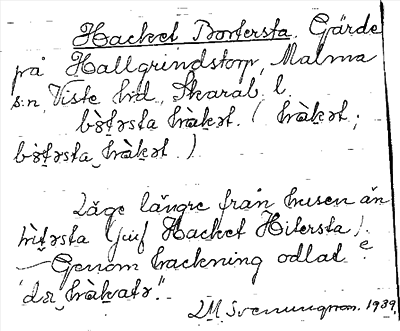 Hacket Bortersta. Gärde
på Hallgrindstorp, Malma
s:n, Viste hd, Skarab. l.
bòṭərsta hàkət. ( hàkət;
bòṭərsta hàkət.)
Läge längre från husen än
hìṭərsta (jmf Hacket Hitersta).
– Genom hackning odlat?
"dɑ hàkatə".
Svenungsson. 1939.